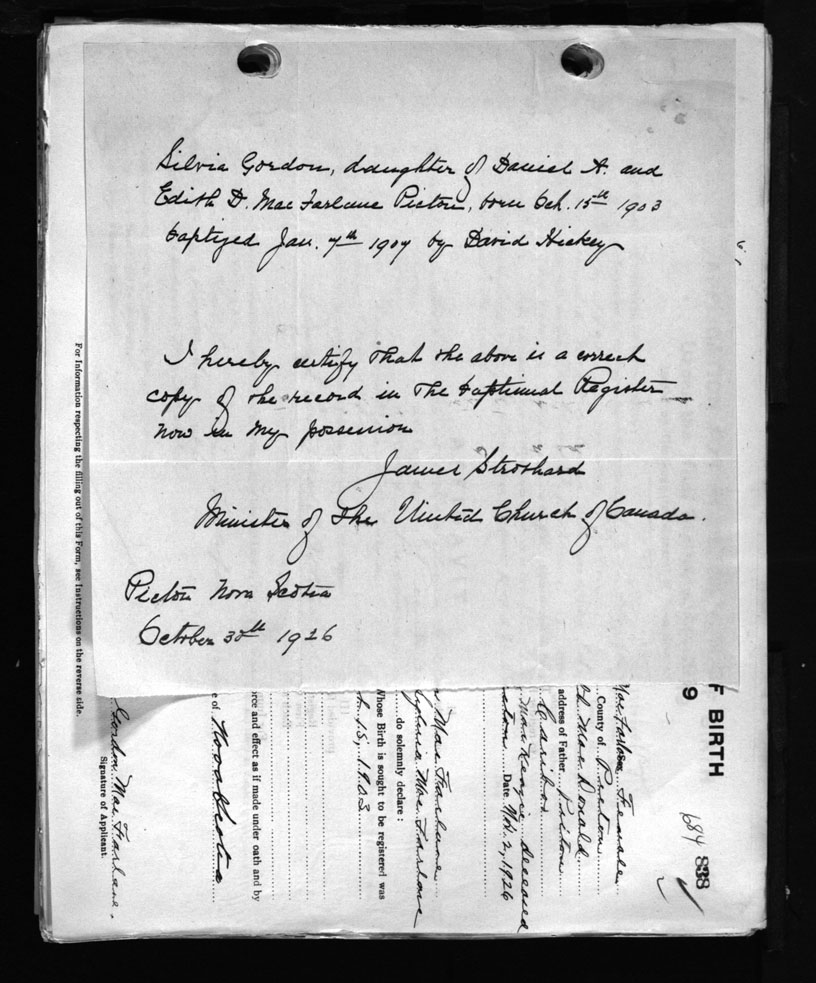 Silvia Gordon, daughter of Daniel A. and
Edith D. MacFarlane Pictou, born Oct. 15th 1903
baptized Jan. 7th 1907 by David Hickey
I hereby certify that the above is a correct
copy of the record in the baptismal Register
now in my possession
James Strothard
Minister of the United Church of Canada.
Pictou Nova Scotia
October 30th 1926
For Information respecting the filling out of this Form, see Instructions on the reverse side.
F BIRTH
9
684 838
MacFarlane Female
County of Pictou
D. MacDonald
address of Father Pictou
Caribou
MacKenzie deceased
Date Nov. 2, 1926
MacFarlane
Sylvia MacFarlane
do solemnly declare :
Whose Birth is sought to be registered was
15, 1903
orce and effect as if made under oath and by
e of Nova Scotia
Gordon MacFarlane.
Signature of Applicant.